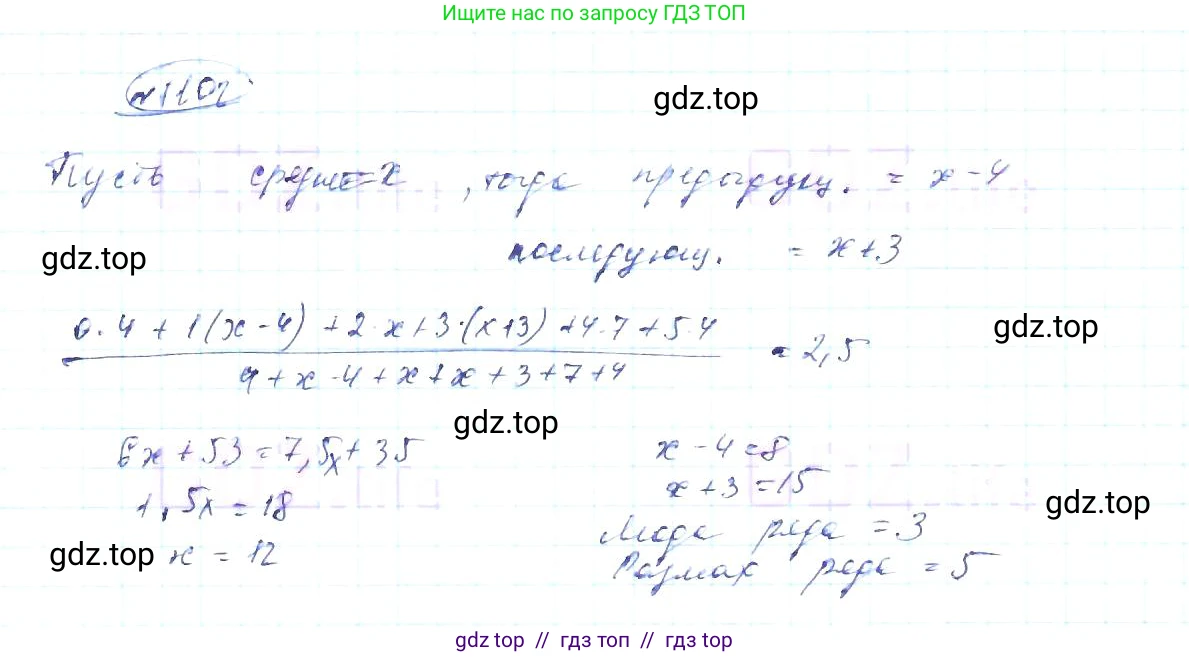 Ищите нас по запросу ГДЗ ТОП
№1102
gdz.top
Пусть среднее = x, тогда предыдущ. = x - 4
gdz.top
последующ. = x + 3
0·4 + 1(x - 4) + 2·x + 3·(x + 3) + 4·7 + 5·4
gdz.top
= 2,5
4 + x - 4 + x + x + 3 + 7 + 4
gdz.top
6x + 53 = 7,5x + 35
x - 4 = 8
1,5x = 18
x + 3 = 15
gdz.top
Мода ряда = 3
gdz.top
x = 12
Размах ряда = 5
gdz top // гдз топ // гдз top